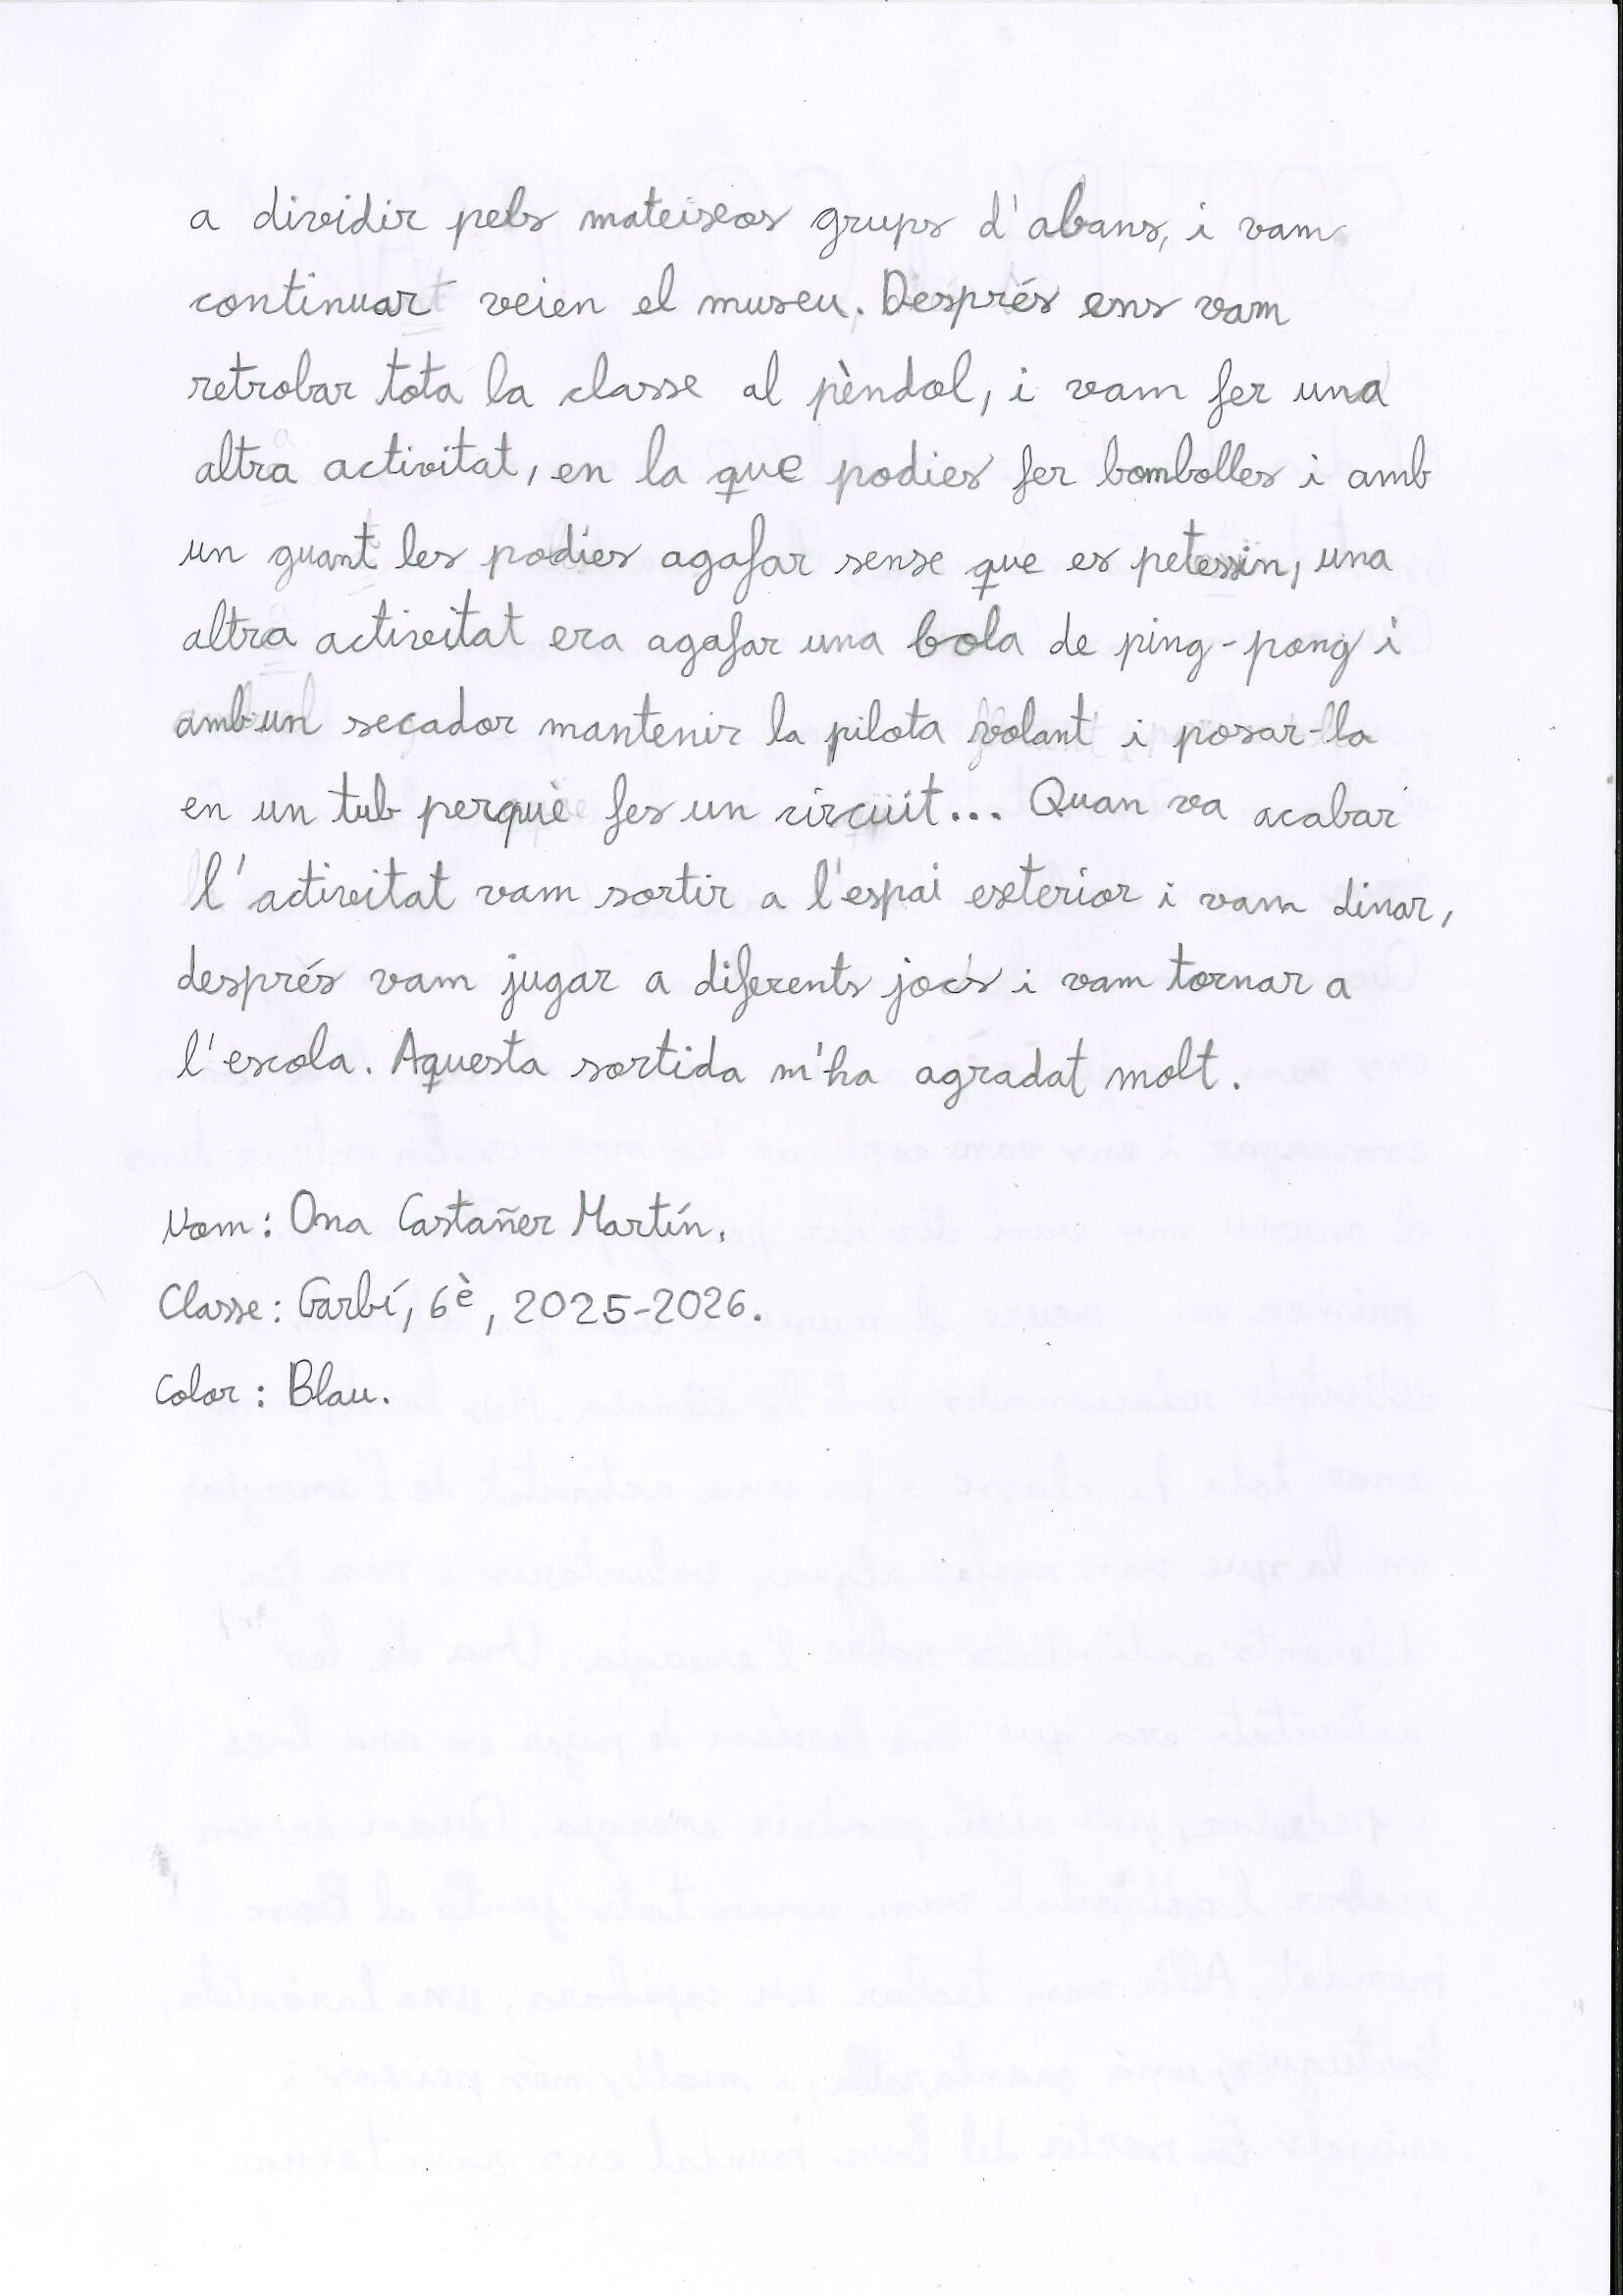 a dividir pels mateixos grups d'abans, i vam
continuar veien el museu. Després ens vam
retrobar tota la classe al pèndol, i vam fer una
altra activitat, en la que podies fer bombolles i amb
un guant les podies agafar sense que es petessin, una
altra activitat era agafar una bola de ping-pong i
amb un secador mantenir la pilota volant i posar-la
en un tub perquè fes un circüit... Quan va acabar
l'activitat vam sortir a l'espai exterior i vam dinar,
després vam jugar a diferents jocs i vam tornar a
l'escola. Aquesta sortida m'ha agradat molt.
Nom: Ona Castañer Martín.
Classe: Garbí, 6è, 2025-2026.
Color: Blau.